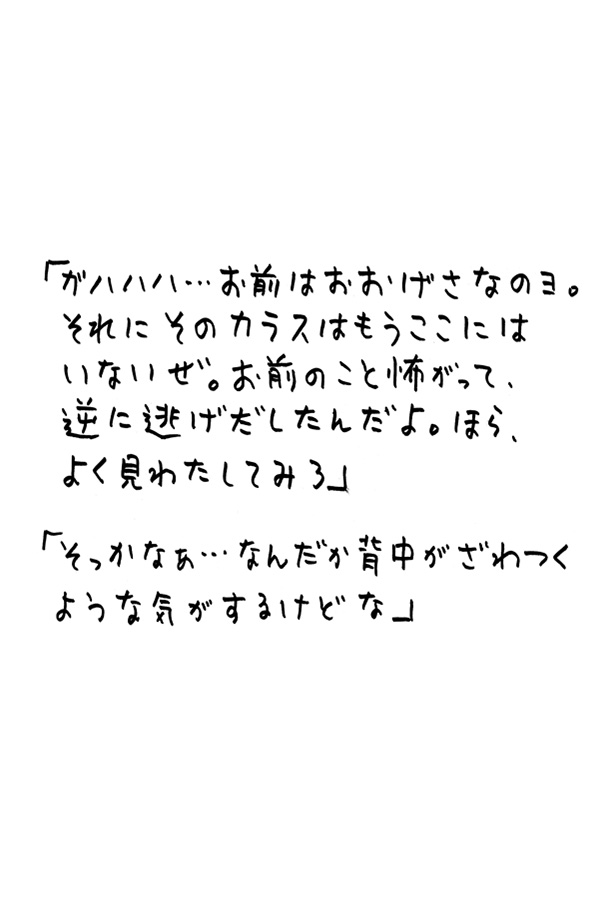 「ガハハハ…お前はおおげさなのヨ。
それにそのカラスはもうここには
いないぜ。お前のこと怖がって、
逆に逃げだしたんだよ。ほら、
よく見わたしてみろ」
「そっかなぁ…なんだか背中がざわつく
ような気がするけどな」